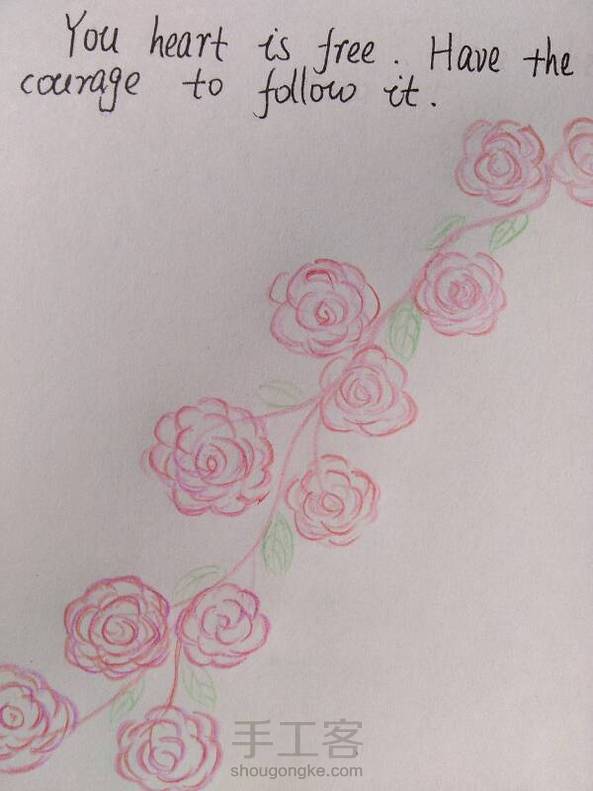 You heart is free. Have the
courage to follow it.
手工客
shougongke.com